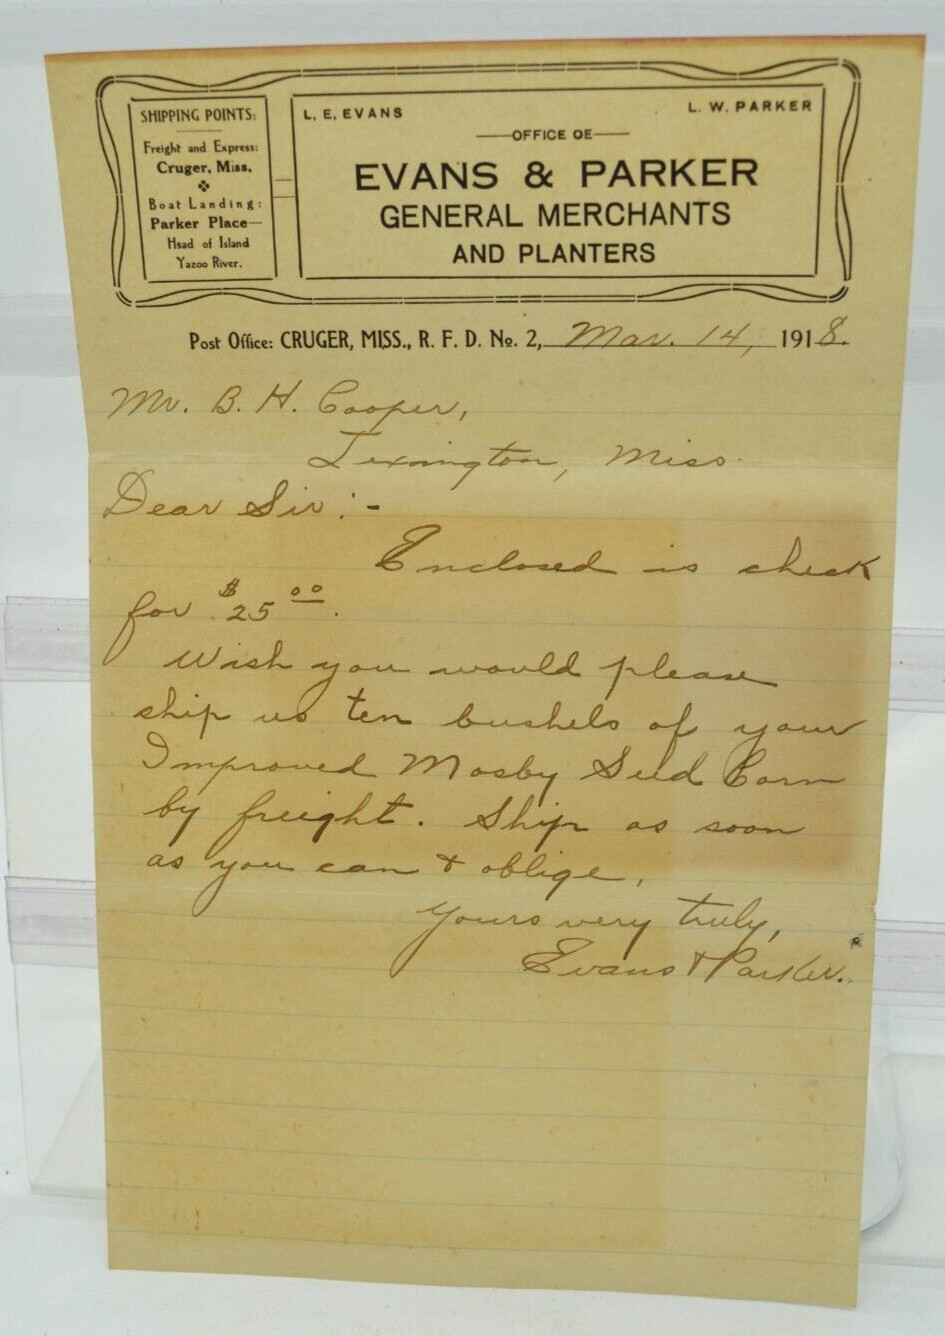 SHIPPING POINTS:
Freight and Express:
Cruger, Miss.
Boat Landing:
Parker Place—
Head of Island
Yazoo River.
L. E. EVANS
L. W. PARKER
—OFFICE OF—
EVANS & PARKER
GENERAL MERCHANTS
AND PLANTERS
Post Office: CRUGER, MISS., R. F. D. No. 2, Mar. 14, 1918.
Mr. B. H. Cooper,
Lexington, Miss.
Dear Sir:-
Enclosed is check
for $25 00.
Wish you would please
ship us ten bushels of your
Improved Mosby Seed Corn
by freight. Ship as soon
as you can & oblige,
Yours very truly,
Evans & Parker.